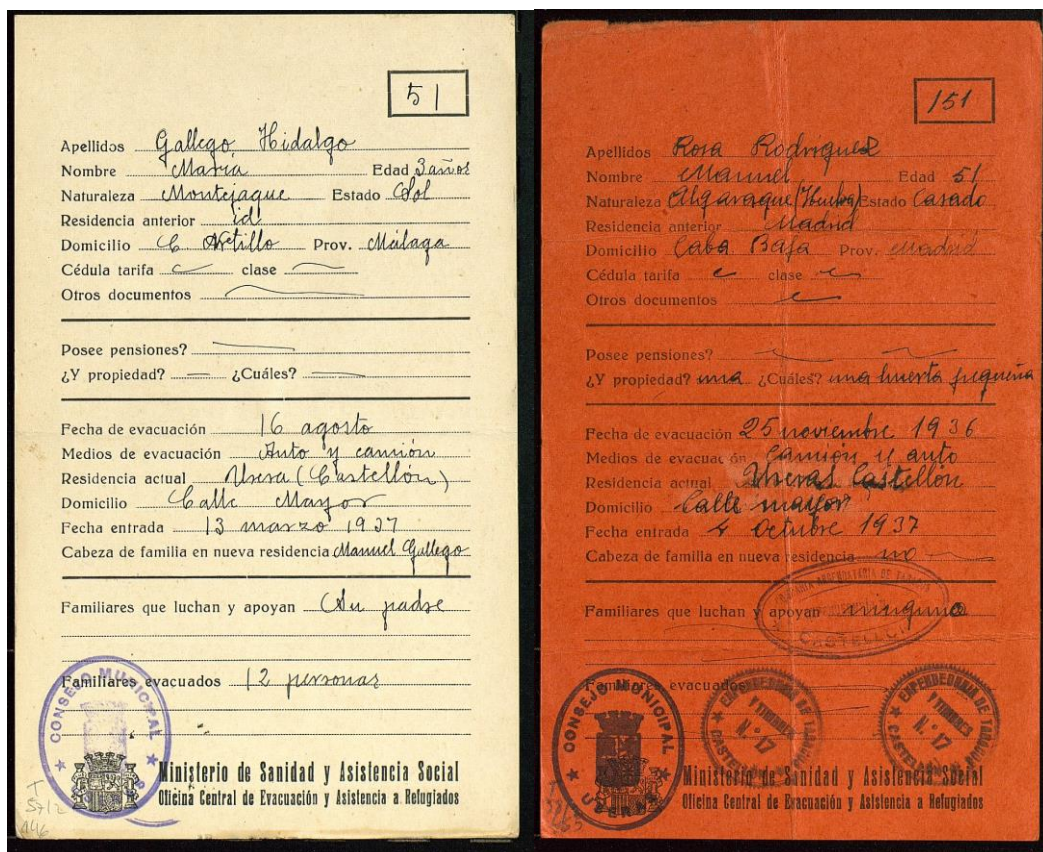 51
Apellidos Gallego Hidalgo
Nombre María Edad 3 años
Naturaleza Montejaque Estado Sol
Residencia anterior id
Domicilio C. Prov. Málaga
Cédula tarifa clase
Otros documentos
Posee pensiones?
¿Y propiedad? ¿Cuáles?
Fecha de evacuación 16 agosto
Medios de evacuación Auto y camión
Residencia actual Usera (Castellón)
Domicilio Calle Mayor
Fecha entrada 13 marzo 1937
Cabeza de familia en nueva residencia Manuel Gallego
Familiares que luchan y apoyan Su padre
Familiares evacuados 12 personas
CONSEJO MUNICIPAL
Ministerio de Sanidad y Asistencia Social
Oficina Central de Evacuación y Asistencia a Refugiados
151
Apellidos Rosa Rodriguez
Nombre Manuel Edad 51
Naturaleza Estado Casado
Residencia anterior Madrid
Domicilio Caba Baja Prov. Madrid
Cédula tarifa clase
Otros documentos
Posee pensiones?
¿Y propiedad? una ¿Cuáles? una huerta pequeña
Fecha de evacuación 25 noviembre 1936
Medios de evacuación Camión y auto
Residencia actual Useras Castellón
Domicilio Calle mayor
Fecha entrada 4 Octubre 1937
Cabeza de familia en nueva residencia no
CASTELLON
Familiares que luchan y apoyan ninguno
Familiares evacuados
CONSEJO MUNICIPAL USERAS
EXPENDEDURIA DE TABACOS Y TIMBRES N.º 17 CASTELLON
EXPENDEDURIA DE TABACOS Y TIMBRES N.º 17 CASTELLON
Ministerio de Sanidad y Asistencia Social
Oficina Central de Evacuación y Asistencia a Refugiados